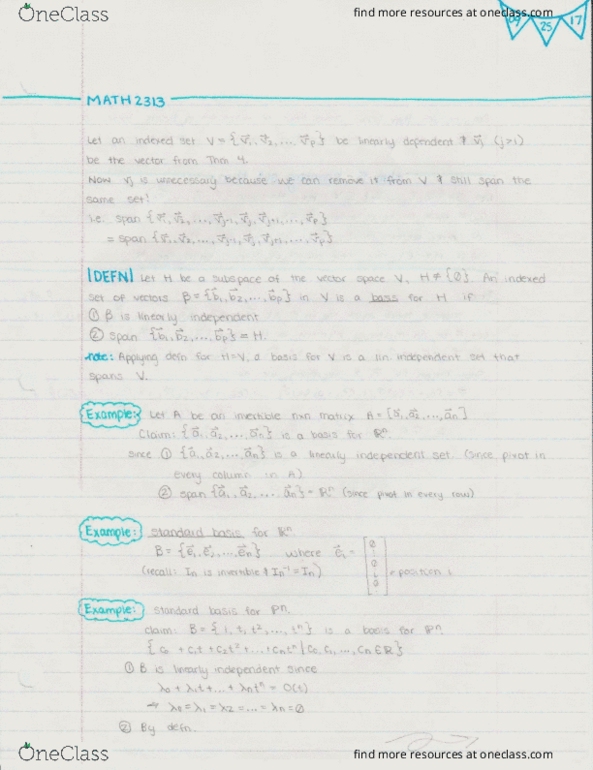 OneClass
find more resources at oneclass.com
09 25 17
MATH 2313
Let an indexed set V = {v⃗₁, v⃗₂, ..., v⃗ₚ} be linearly dependent & v⃗ⱼ (j>1)
be the vector from Thm 4.
Now v⃗ⱼ is unnecessary because we can remove it from V & still span the
same set!
i.e. span {v⃗₁, v⃗₂, ..., v⃗ⱼ₋₁, v⃗ⱼ, v⃗ⱼ₊₁, ..., v⃗ₚ}
= span {v⃗₁, v⃗₂, ..., v⃗ⱼ₋₁, v⃗ⱼ₊₁, ..., v⃗ₚ}
|DEFN| Let H be a subspace of the vector space V, H ≠ {0⃗}. An indexed
set of vectors B = {b⃗₁, b⃗₂, ..., b⃗ₚ} in V is a basis for H if
① B is linearly independent
② span {b⃗₁, b⃗₂, ..., b⃗ₚ} = H.
note: Applying defn for H=V, a basis for V is a lin. independent set that
spans V.
Example: Let A be an invertible nxn matrix A = [a⃗₁, a⃗₂, ..., a⃗ₙ]
Claim: {a⃗₁, a⃗₂, ..., a⃗ₙ} is a basis for ℝⁿ.
since ① {a⃗₁, a⃗₂, ..., a⃗ₙ} is a linearly independent set. (since pivot in
every column in A)
② span {a⃗₁, a⃗₂, ..., a⃗ₙ} = ℝⁿ (since pivot in every row)
Example: standard basis for ℝⁿ.
B = {e⃗₁, e⃗₂, ..., e⃗ₙ} where e⃗ᵢ = [0 ⋮ 0 1 0 ⋮ 0] ← position i
(recall: Iₙ is invertible & Iₙ⁻¹ = Iₙ)
Example: standard basis for ℙⁿ.
claim: B = {1, t, t², ..., tⁿ} is a basis for ℙⁿ
{c₀ + c₁t + c₂t² + ... + cₙtⁿ | c₀, c₁, ..., cₙ ∈ ℝ}
① B is linearly independent since
λ₀ + λ₁t + ... + λₙtⁿ = 0(t)
→ λ₀ = λ₁ = λ₂ = ... = λₙ = 0
② By defn.
OneClass
find more resources at oneclass.com